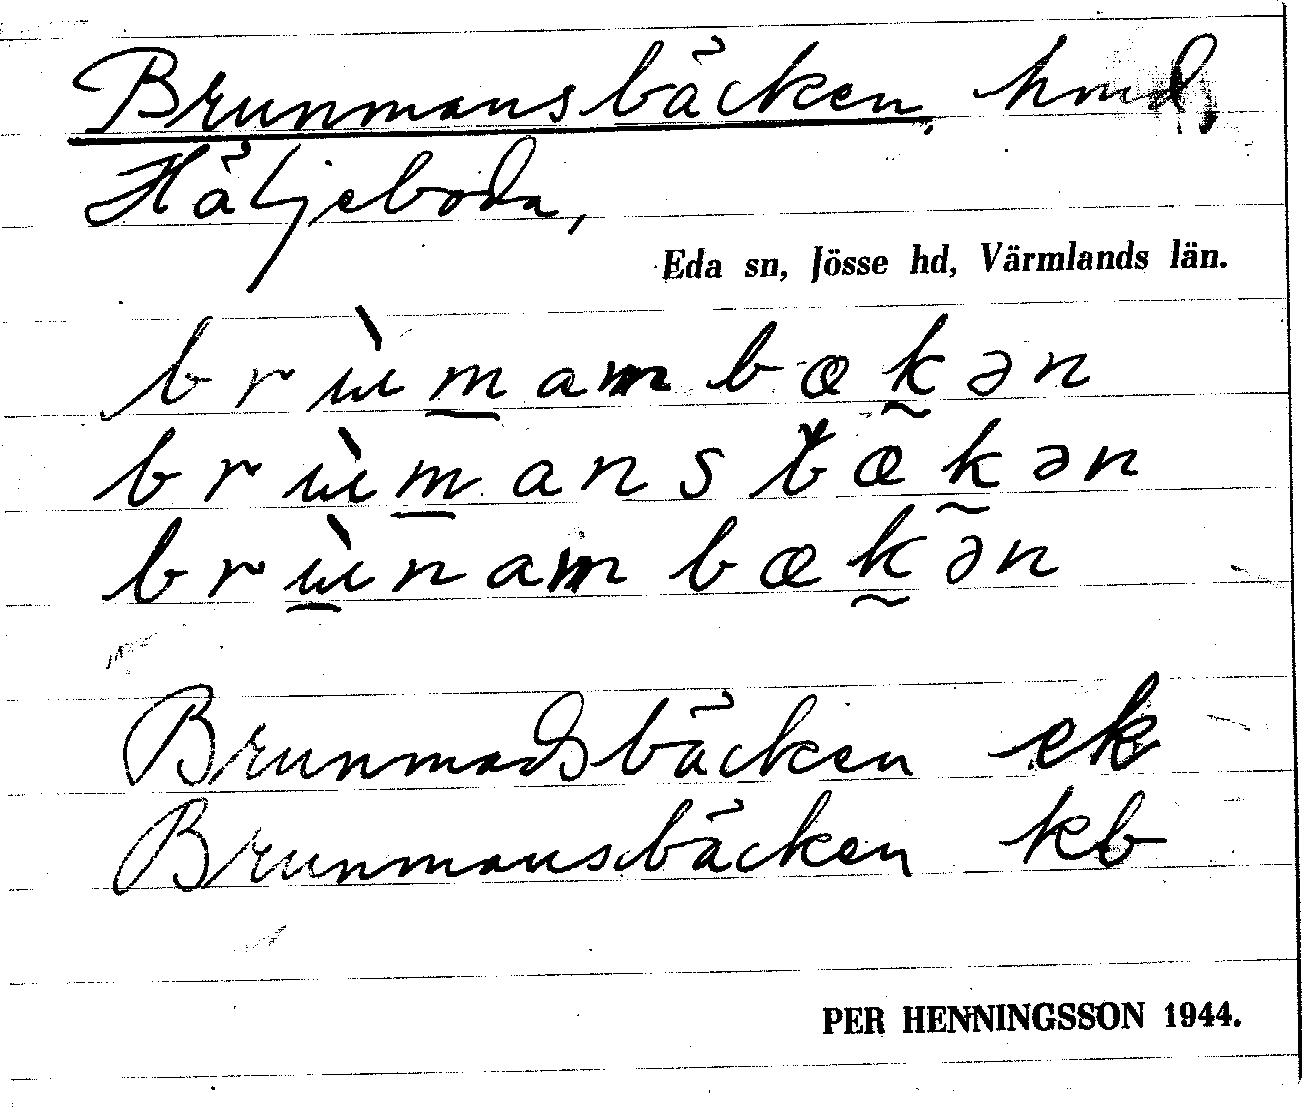 Brunmansbäcken, hmd
Häljeboda,
Eda sn, Jösse hd, Värmlands län.
brɯ̀m̲ambæk̰ən
brɯ̀m̲ansbæk̰ən
brɯ̲̀nambæk̰ən
Brunmadsbäcken ek
Brunmansbäcken kb
PER HENNINGSSON 1944.